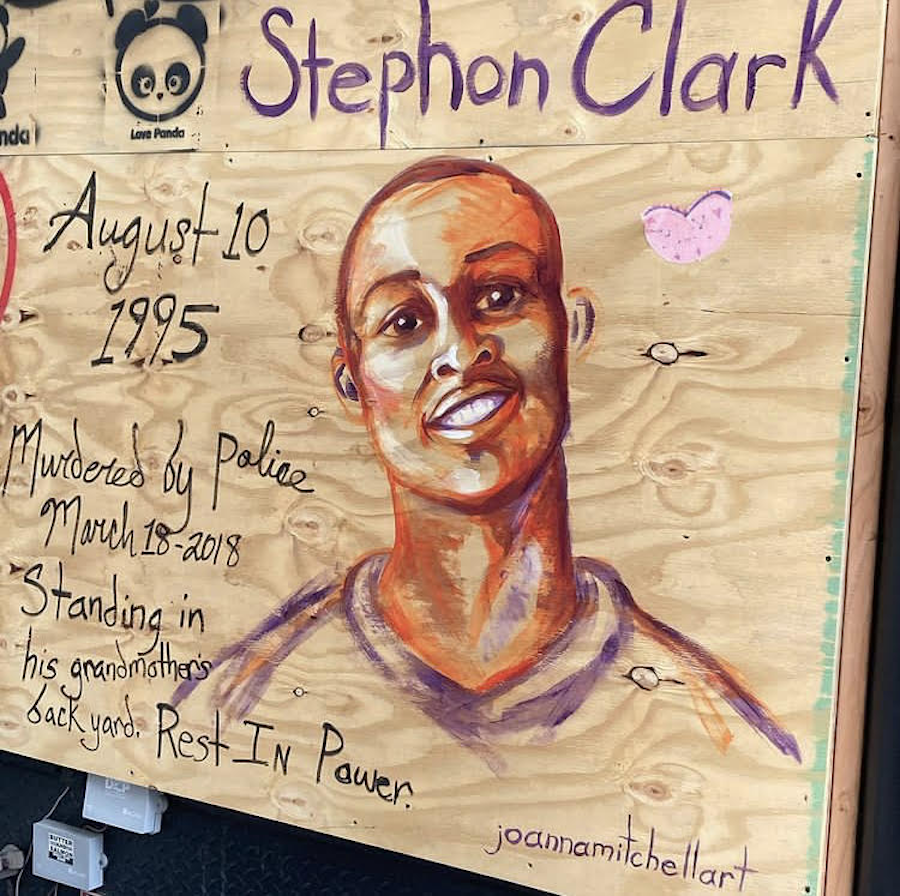 Stephon Clark
nda
Love Panda
August 10
1995
Murdered by Police
March 18-2018
Standing in
his grandmother's
back yard. Rest In Power.
joannamitchellart